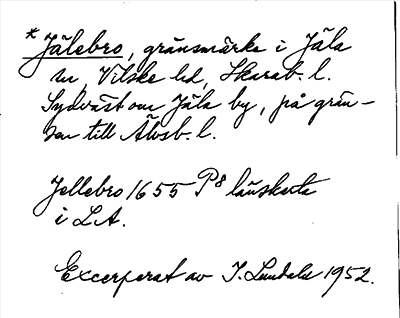 * Jälebro, gränsmärke i Jäla
sn, Vilske hd, Skarab. l.
Sydväst om Jäla by, på grän-
sen till Älvsb. l.
Jellebro 1655 P8 länskarta
i L.A.
Excerperat av I. Lundahl 1952.